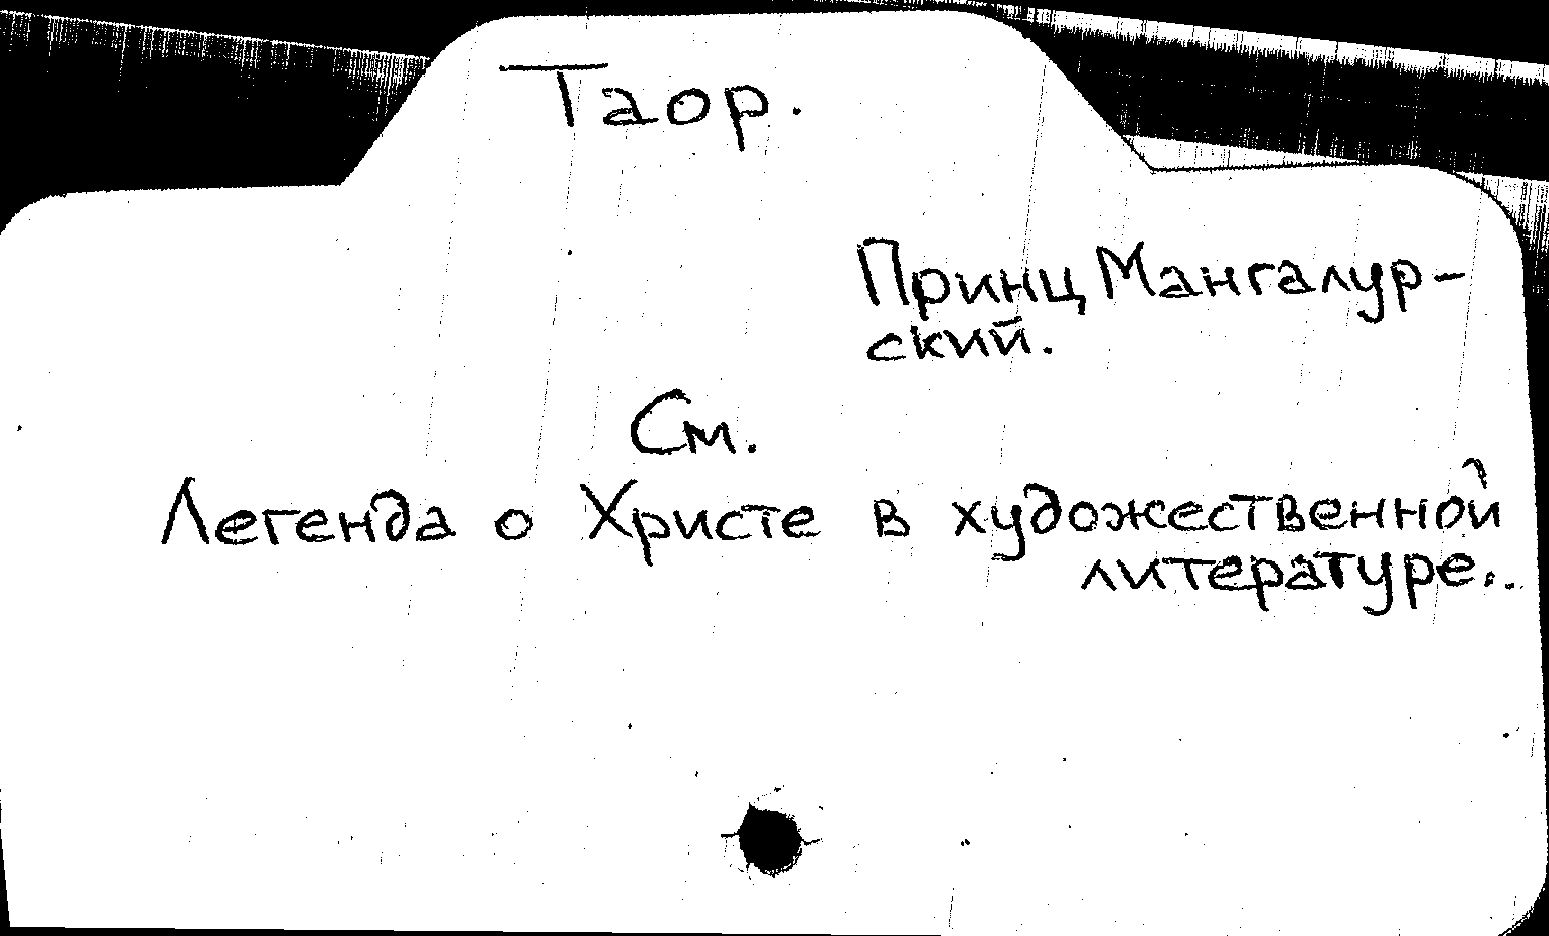 Таор.
Принц Мангалур-
ский.
См.
Легенда о Христе в художественной
литературе..